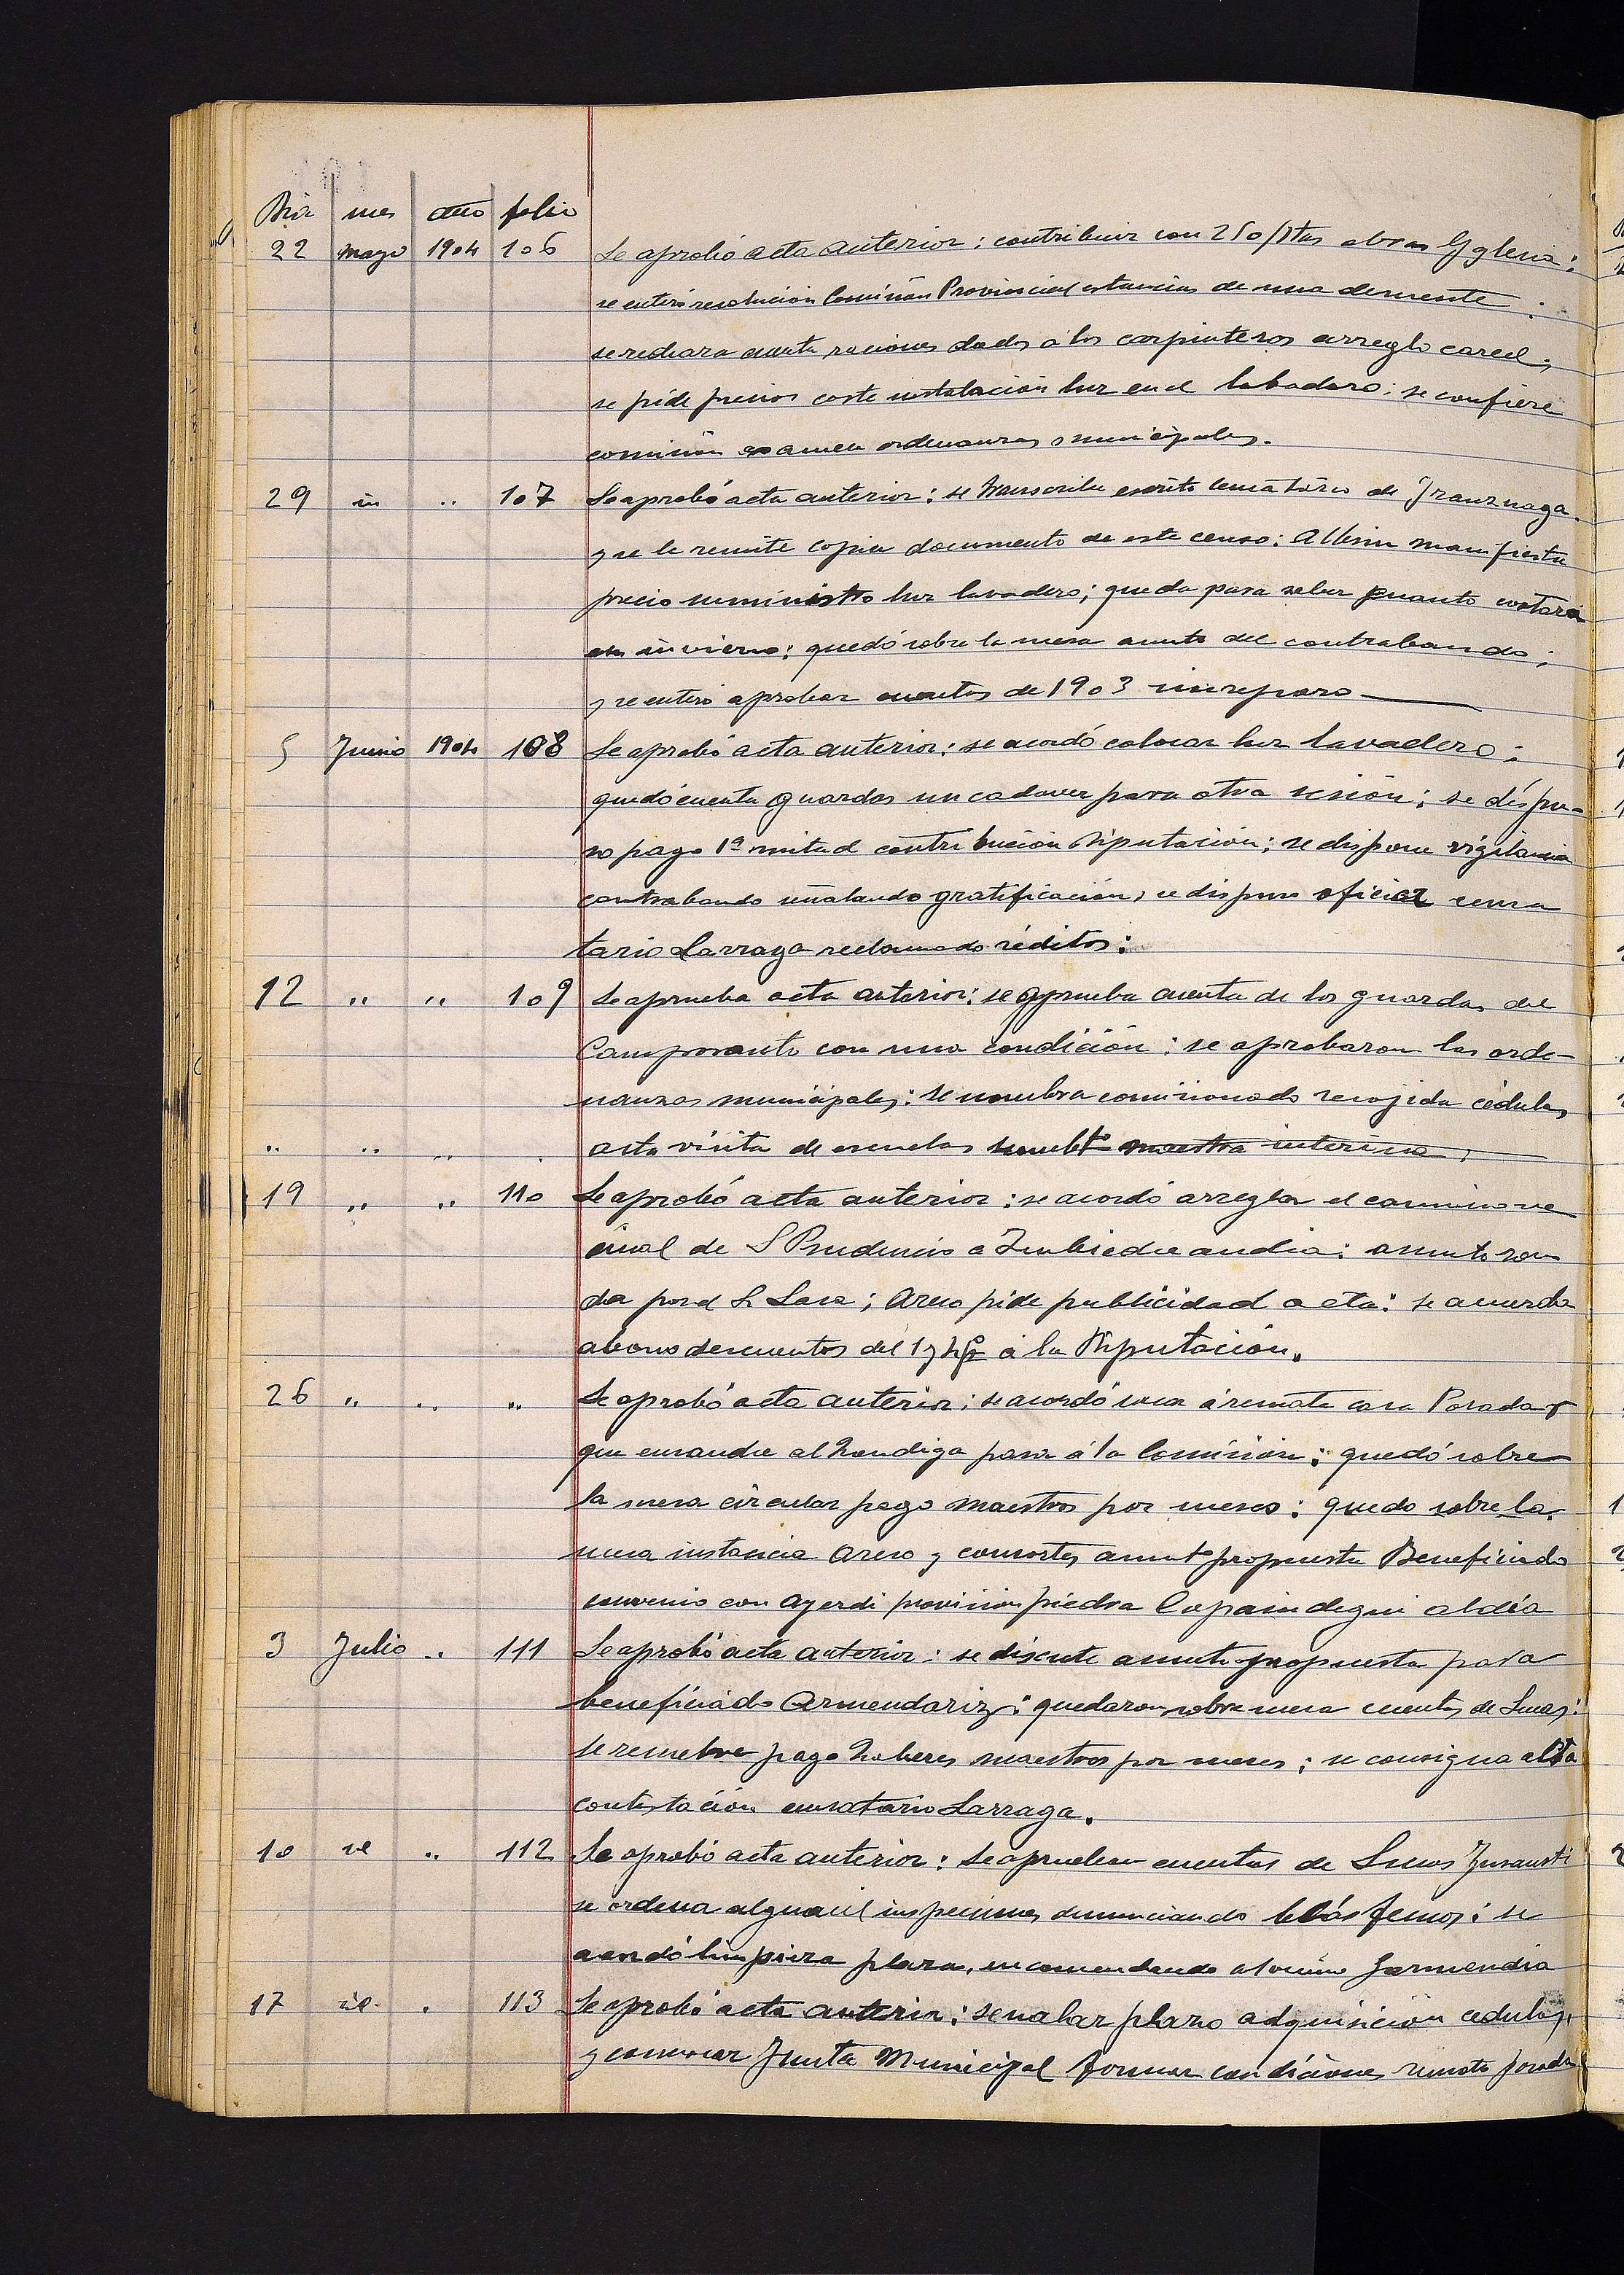 Dia mes año folio
22 mayo 1904 106 Se aprobó acta anterior; contribuir con 250/Ptas obras Yglesia:
se enteró resolución Comisión Provincial estancias de una demente:
se rechaza cuenta raciones dadas a los carpinteros arreglo carcel;
se pide precios coste instalación luz en el labadero; se confiere
comisión examen ordenanzas municipales.
29 id .. 107 Se aprobó acta anterior: se transcribe escrito censatario de Iranznaga
y se le remite copia documento de este censo: Albisu manifiesta
precio suministro luz lavadero; queda para saber cuanto costará
en invierno: quedó sobre la mesa asunto del contrabando;
y se enteró aprobar cuentas de 1903 sin reparo
5 Junio 1904 108 Se aprobó acta anterior: se acordó colocar luz lavadero:
quedó cuenta guardas un cadaver para otra sesión; se dispu-
so pago 1ª mitad contribución Diputación; se dispone vigilancia
contrabando señalando gratificación; se dispuso oficiar censa
tario Larraga reclamando réditos:
12 " " 109 Se aprueba acta anterior: se aprueba cuenta de los guardas del
Camposanto con una condición: se aprobaron las orde-
nanzas municipales: se nombra comisionado recojida cédulas
" " " . acta visita de escuelas nombtº maestra interina.
19 " " 110 Se aprobó acta anterior: se acordó arreglar el camino ve
cinal de S Prudencio a Zubiedre andia: asunto ron
da por el Sr Lasa; Areso pide publicidad acta: se acuerda
abono descuentos del 1 y 4% á la Diputación.
26 " " " Se aprobó acta anterior; se acordó sacar á remate casa Posada y
que ensanche alhondiga pasa á la Comisión; quedó sobre
la mesa circular pago maestros por meses: quedo sobre la
mesa instancia Areso y consortes asunto propuesta Beneficiado
convenio con Ayerdi provisión piedra Capaindegui aldea
3 Julio .. 111 Se aprobó acta anterior: se discute asunto propuesta para
beneficiado Armendariz: quedaron sobre mesa cuentas de Lucas:
se resuelve pago haberes maestros por meses; se consigna
contestación censatario Larraga.
10 id .. 112 Se aprobó acta anterior: se aprueban cuentas de Lucas Insausti
se ordena alguacil inspecciones denunciando blasfemos: se
acordó limpieza plaza, encomendando al vecino Garmendia
17 id . 113 Se aprobó acta anterior: señalar plazo adquisición cedulas,
y convocar Junta Municipal formar condiciones remate posada